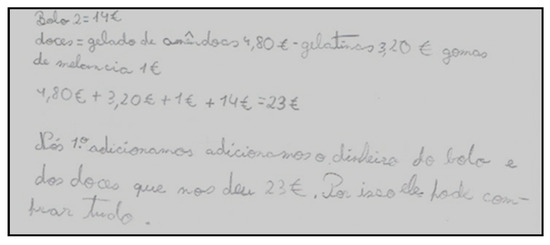 Bolo 2=14€
doces=gelado de amêndoas 4,80€-gelatinas 3,20 € gomas
de melancia 1€
4,80€+3,20€+1€+14€=23€
Nós 1.º adicionamos adicionamos o dinheiro do bolo e
dos doces que nos deu 23€. Por isso ele pode com-
prar tudo.